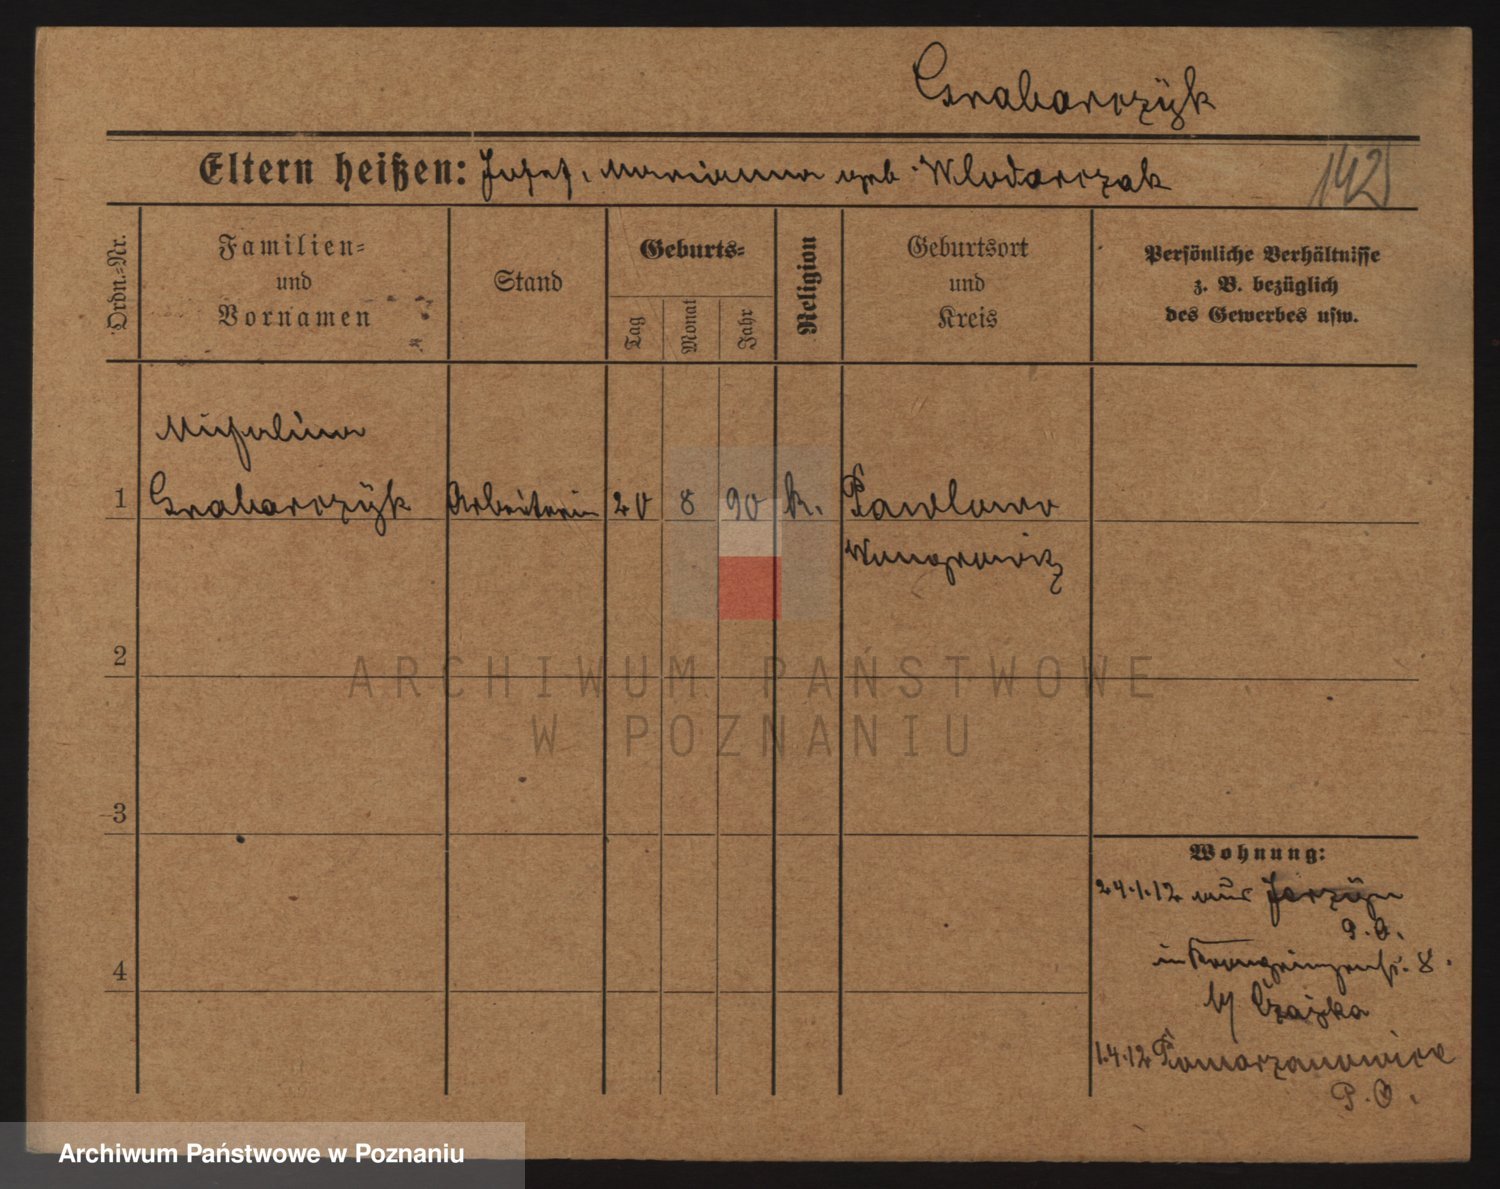 Grabarczÿk
Eltern heißen: Josef, Marianna geb. Wlodarczak
142
Ordn.-Nr.
Familien-
und
Vornamen
Stand
Geburts-
Tag
Monat
Jahr
Religion
Geburtsort
und
Kreis
Persönliche Verhältnisse
z. B. bezüglich
des Gewerbes usw.
Michalina
1 Grabarczÿk Arbeiterin 20 8 90 k. Pawlowo
Wongrowitz
2
ARCHIWUM PAŃSTWOWE
W POZNANIU
3
Wohnung:
24.1.12 aus
P.O.
in Kronprinzenstr. 8.
b/ Czajka
4
1.4.12 Pomarzanowice
P.O.
Archiwum Państwowe w Poznaniu